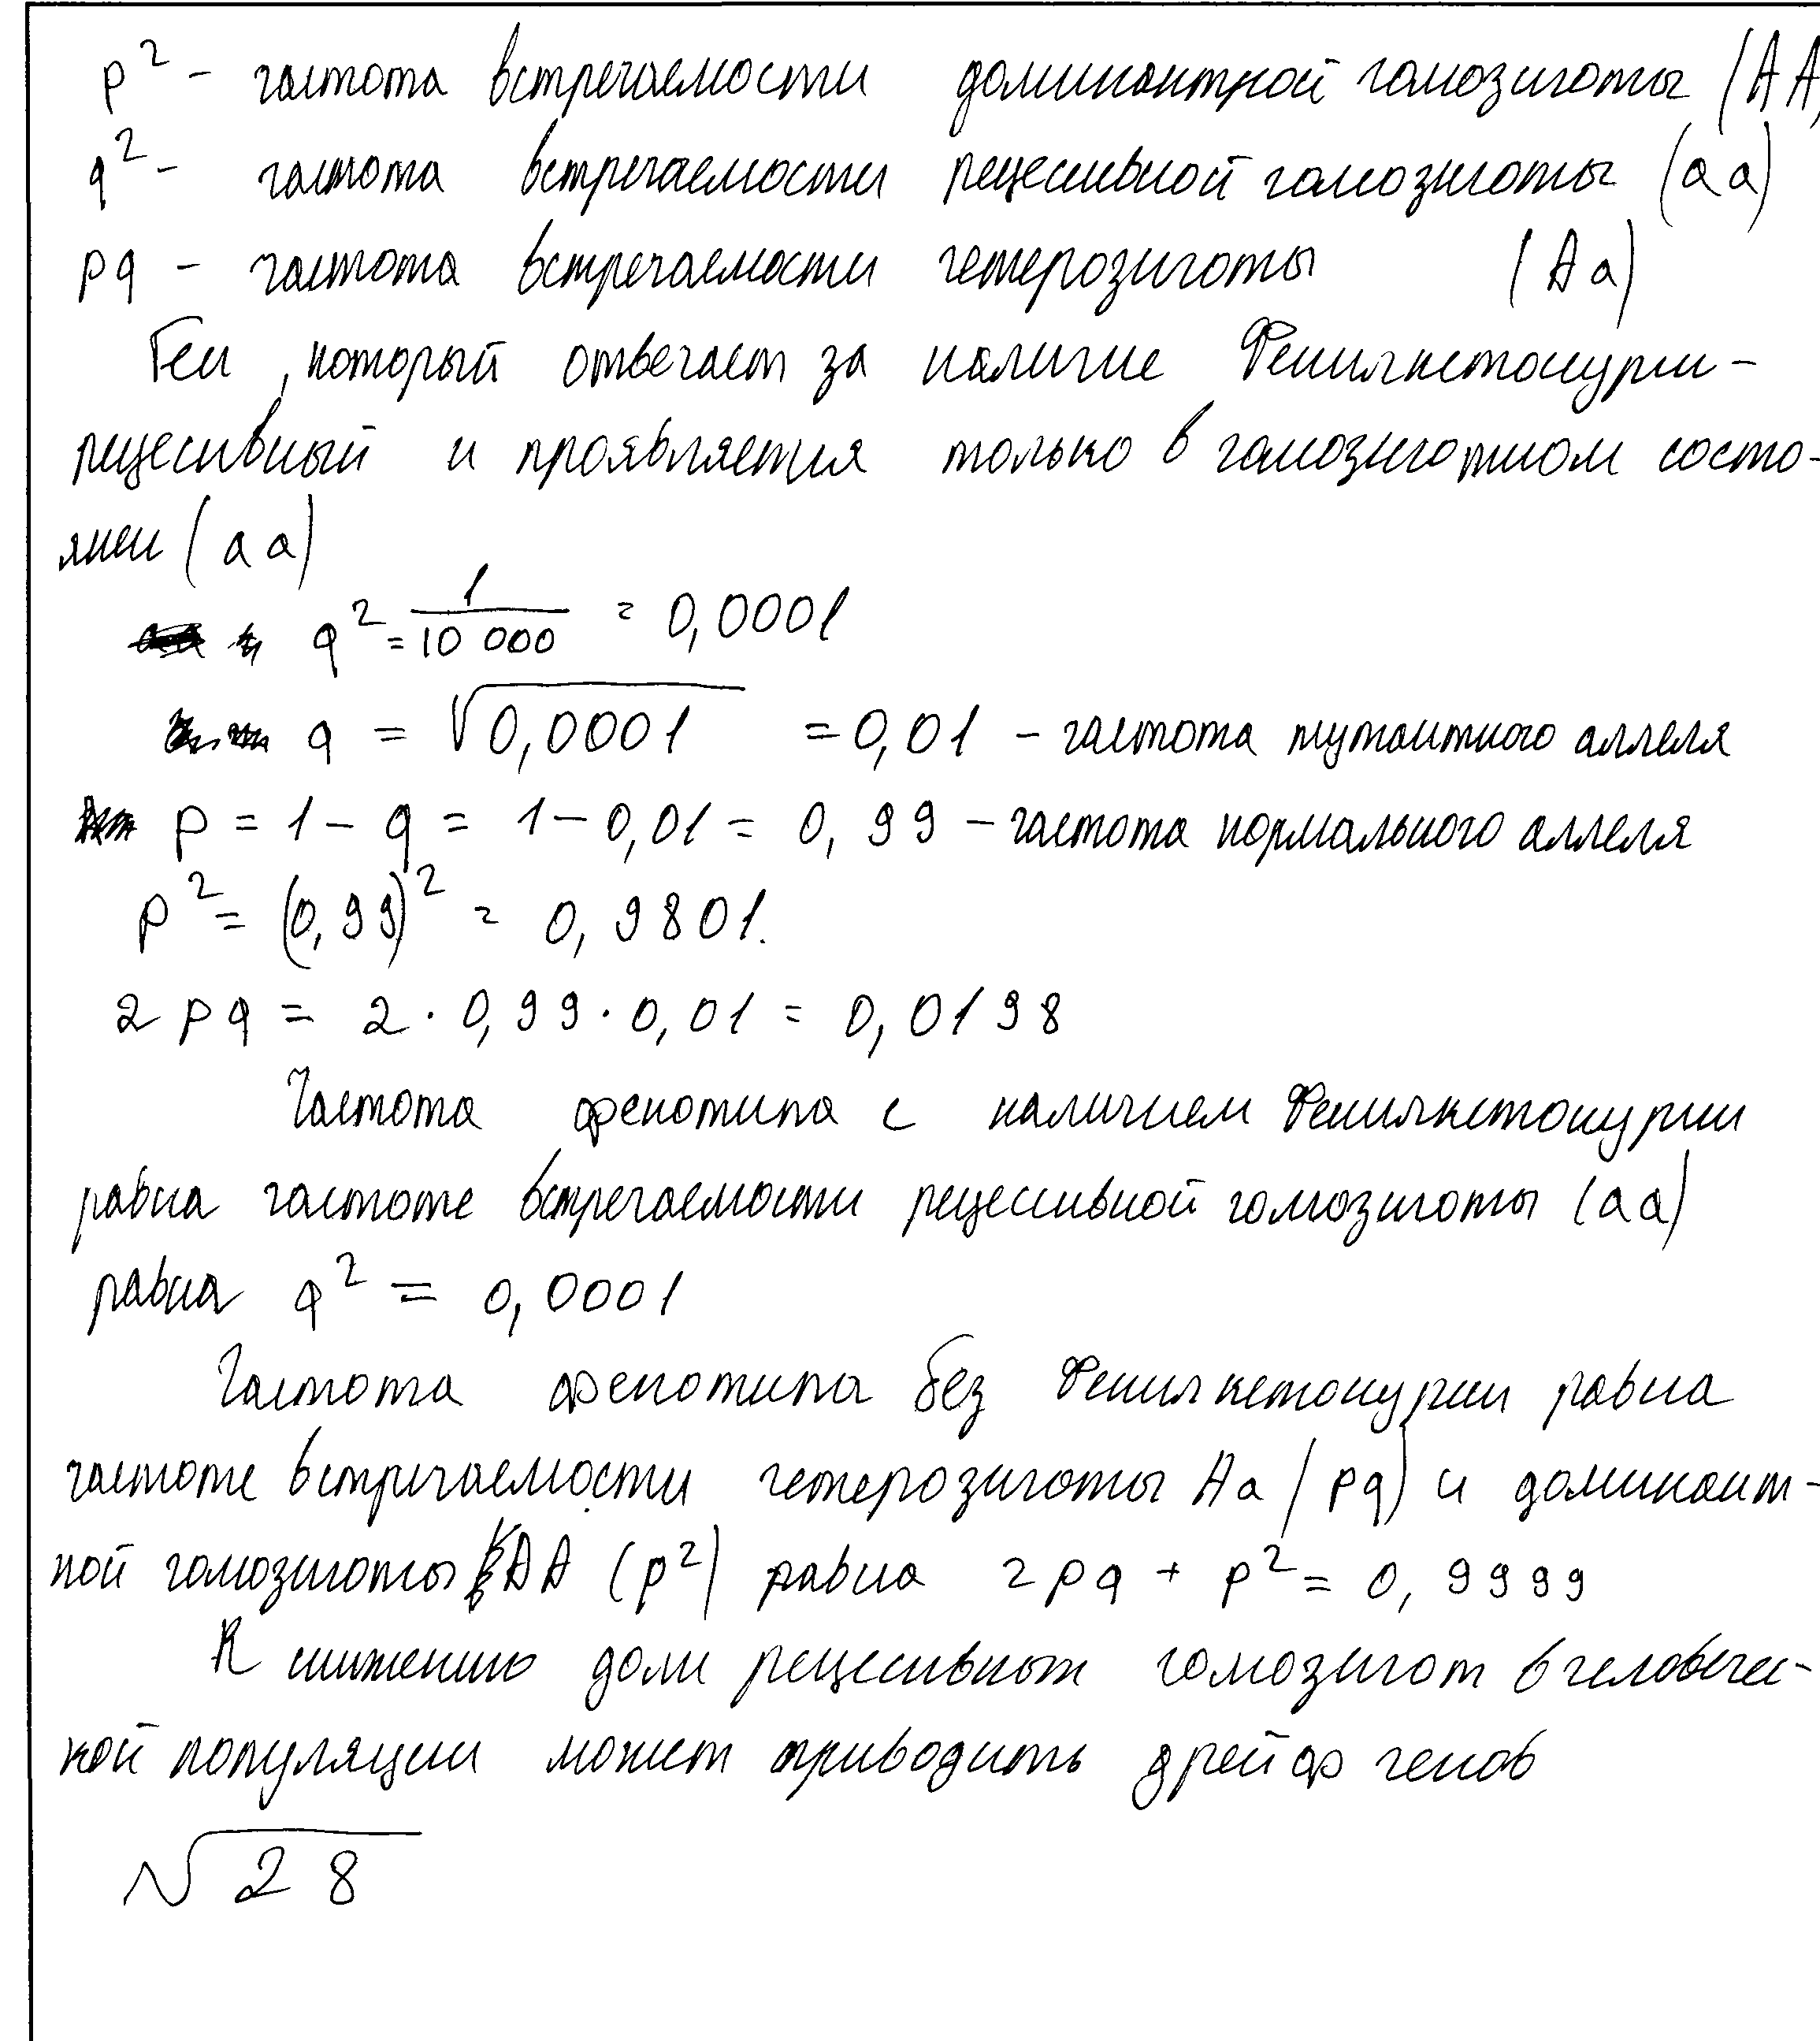 p² - частота встречаемости доминантной гомозиготы (АА)
q² - частота встречаемости рецессивной гомозиготы (аа)
pq - частота встречаемости гетерозиготы (Аа)
Ген, который отвечает за наличие Фенилкетонурии -
рецесивный и проявляется только в гомозиготном состо-
янии (аа)
q² = 1/10 000 = 0,0001
q = √0,0001 = 0,01 - частота мутантного аллеля
p = 1 - q = 1 - 0,01 = 0,99 - частота нормального аллеля
p² = (0,99)² = 0,9801.
2pq = 2 · 0,99 · 0,01 = 0,0198
Частота фенотипа с наличием Фенилкетонурии
равна частоте встречаемости рецессивной гомозиготы (аа)
равна q² = 0,0001
Частота фенотипа без Фенилкетонурии равна
частоте встричаемости гетерозиготы Аа (pq) и доминант-
ной гомозиготы АА (p²) равна 2pq + p² = 0,9999
К снижению доли рецесивных гомозигот в человечес-
кой популяции может приводить дрейф генов
√28